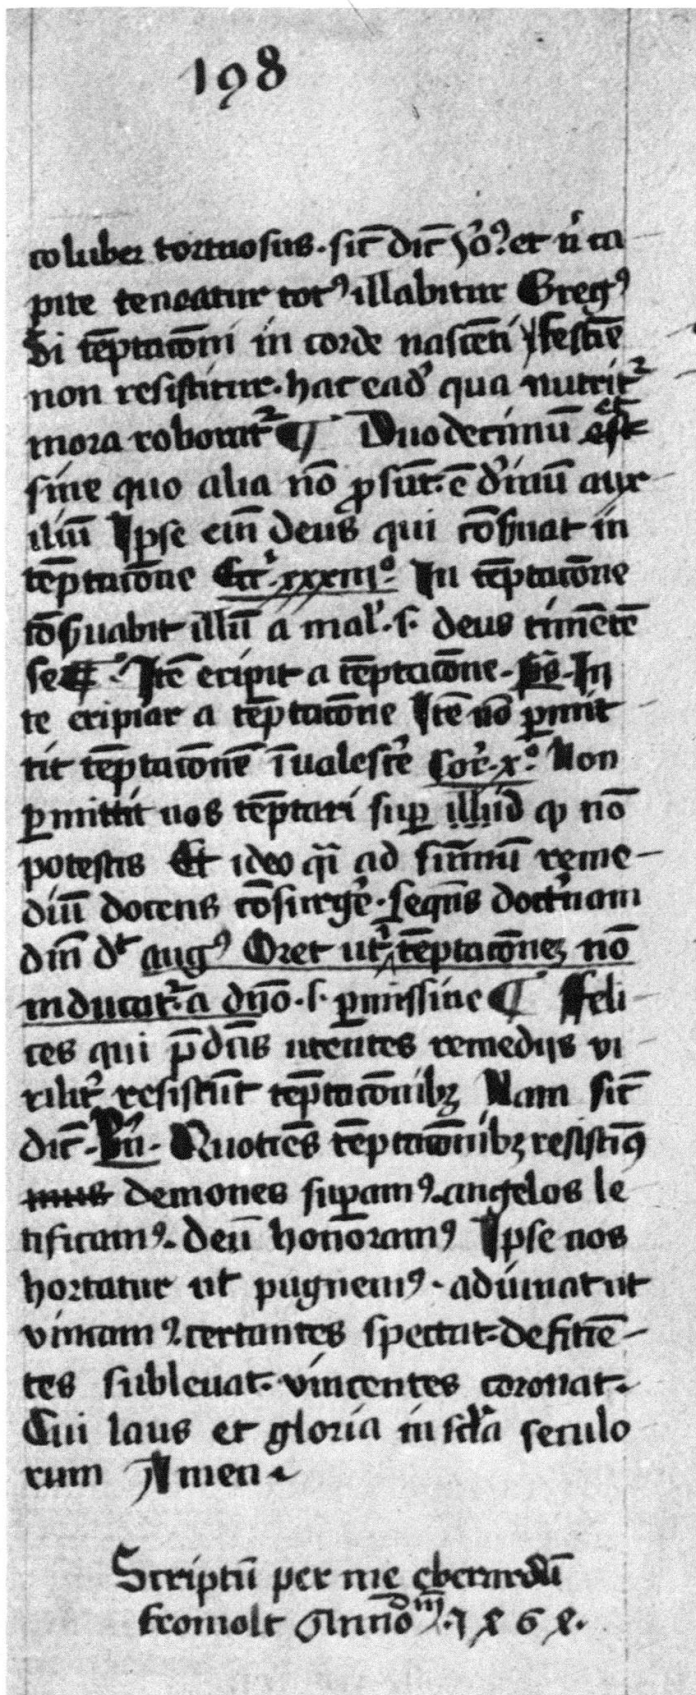 198
coluber tortuosus. sic̄ dic̄ et nͥ ca
pite teneatur totꝰ illabitur Gregꝰ
Si tēptacōni in corde nascēti festīe
non resistitur. hac eadʼ qua nutritᷣ
mora roboratᷣ ¶ Duodecimū est et
sine quo alia nō ꝓsūt. ē dʼīnū aux
iliū Ipse eīn deus qui cōẜuat in
tēptacōne Eccͥ. xxxiiiº. In tēptacōne
cōẜuabit illū a malʼ. s. deus timētē
se ¶ Itē eripit a tēptacōne. p̄s. In
te eripiar a tēptacōne Itē nō ꝑmit
tit tēptacōnē īualescʼe Corʼ. xº. Non
ꝑmittit uos tēptari suꝑ illud qꝫ nō
potestis Et ideo qͣi ad sūmū reme
diū docens cōsurgʼe. seqns̄ doctʼnam
dn̄i dt̄ augꝰ Oret utͥ tēptacōneꝫ nō
inducatᷣ. a dn̄o. s. ꝑmissiue ¶ ffeli
ces qui p̄dc̄is utentes remedijs vi
rilitʼ resistūt tēptacōnibꝫ Nam sic̄
dic̄. Bn̄. Quotiēs tēptacōnibꝫ resistimꝰ
mus demones suꝑamꝰ. angelos le
tificamꝰ. deū honoramꝰ Ipse nos
hortatur ut pugnemꝰ. adiuuat ut
vincamꝰ. certantes spectat. deficiē
tes subleuat. vincentes coronat.
Cui laus et gloria in scl̄a seculo
rum Amen.
Scriptū per me eberardū
fromolt Anno dn̄i. 1868.